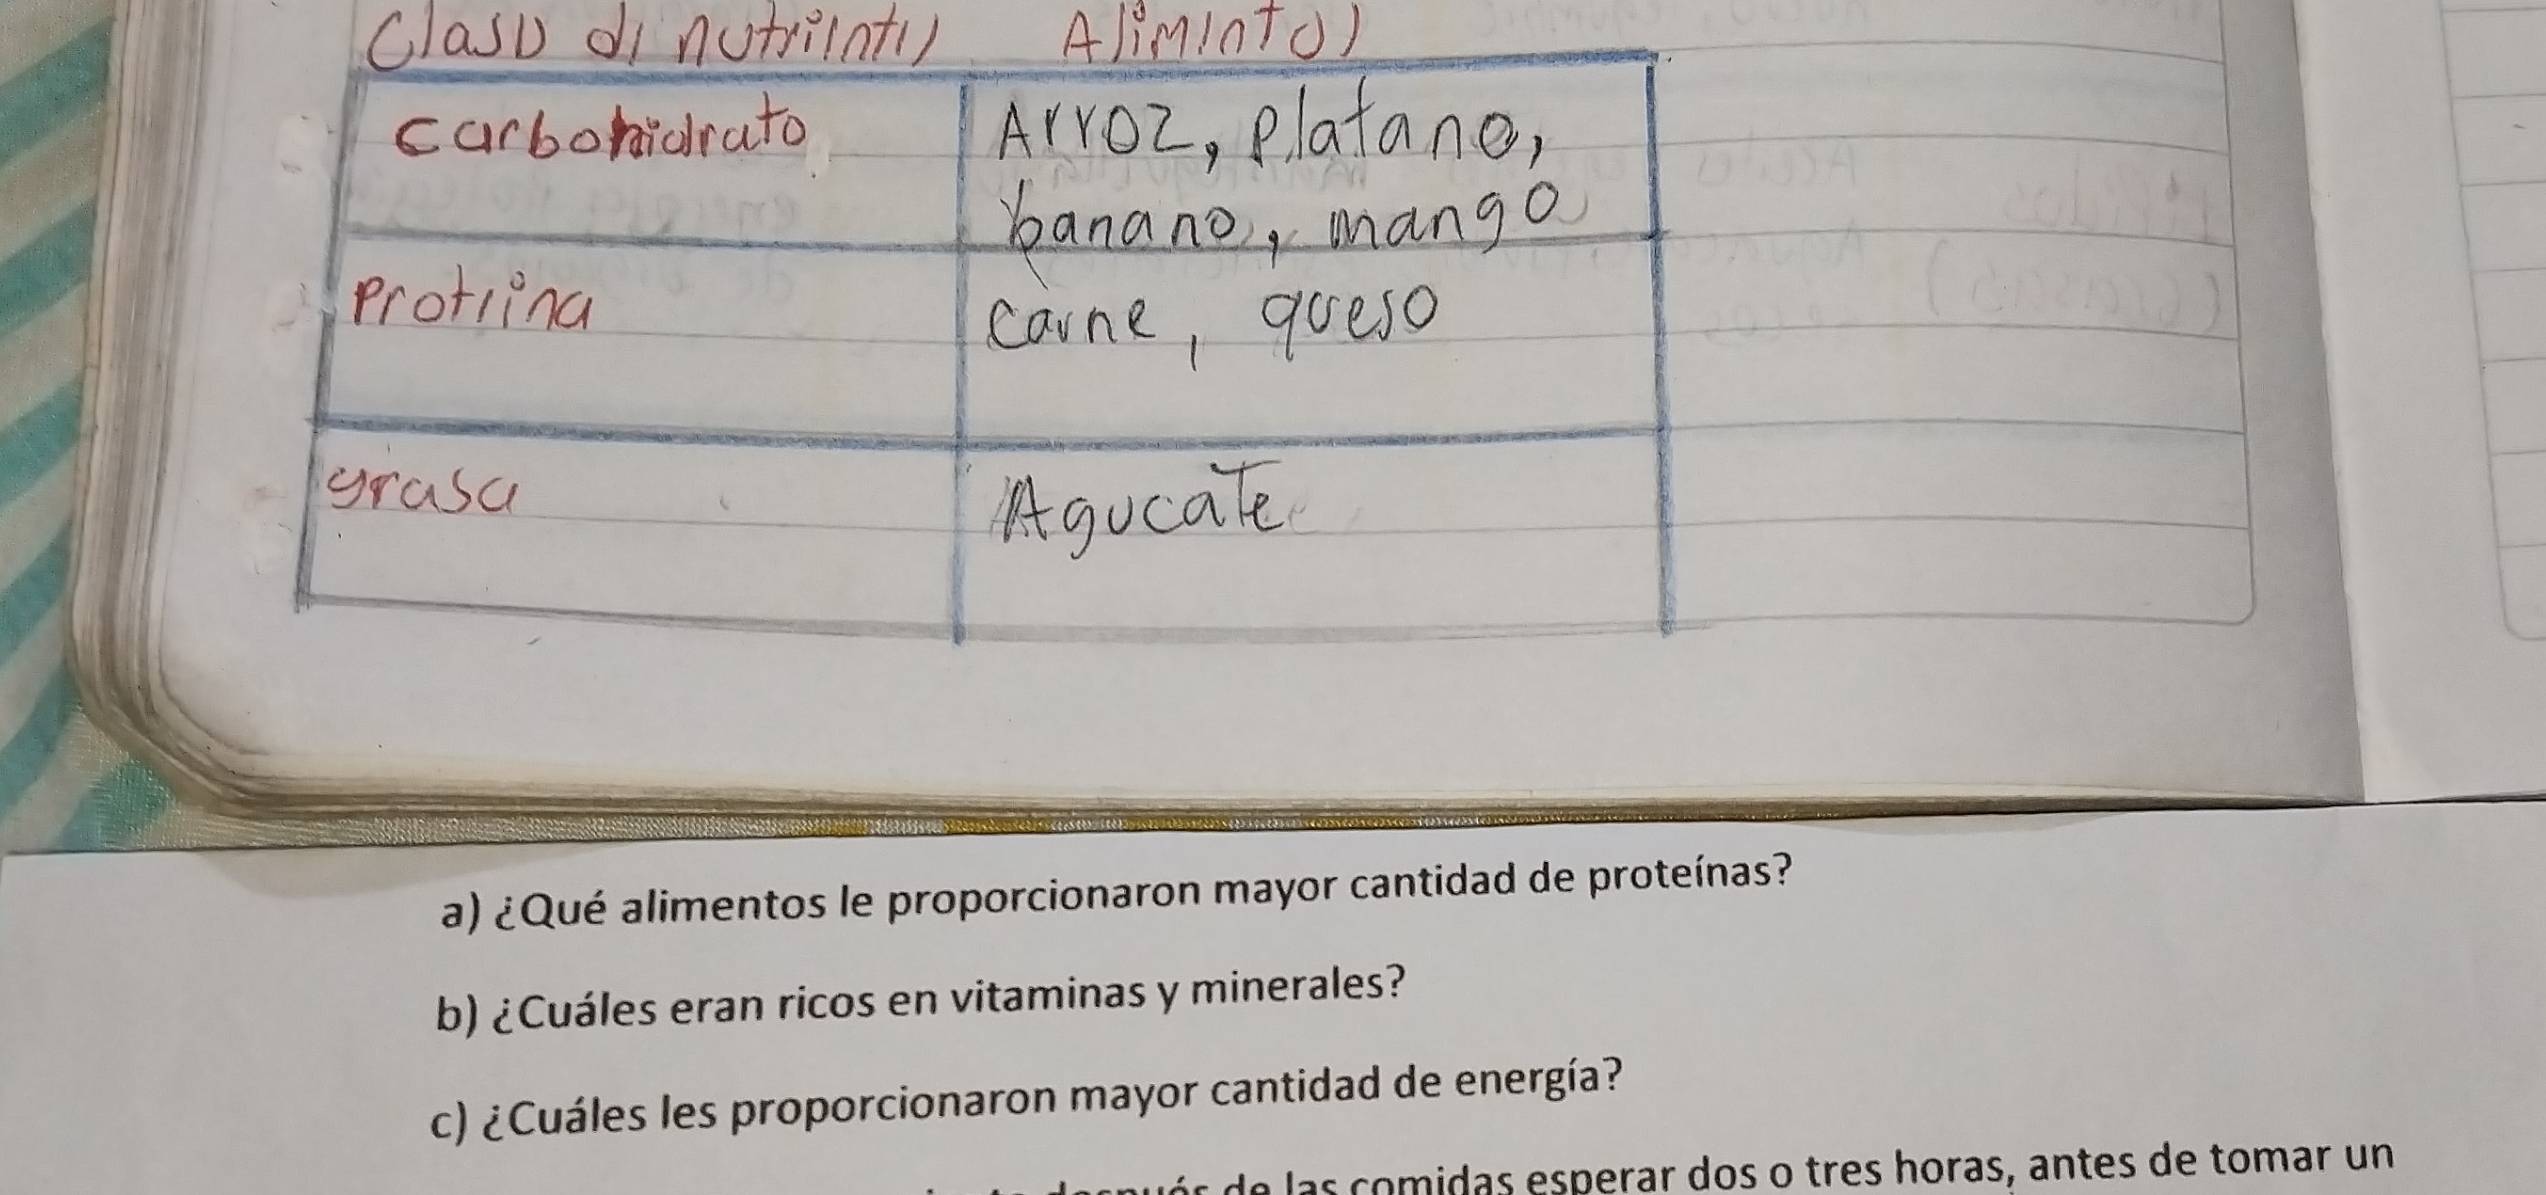 Clase de nutrientes Alimentos
carbohidrato Arroz, Platano,
banano, mango
Proteina carne, queso
grasa Agucate
a) ¿Qué alimentos le proporcionaron mayor cantidad de proteínas?
b) ¿Cuáles eran ricos en vitaminas y minerales?
c) ¿Cuáles les proporcionaron mayor cantidad de energía?
de las comidas esperar dos o tres horas, antes de tomar un